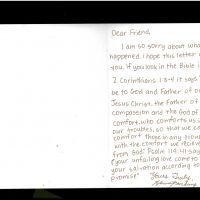 Dear Friend,
I am so sorry about what
happened. I hope this letter
you. If you look in the Bible i
2 Corinthians 1:3-4 it says
be to God and Father of our
Jesus Christ, the Father of
compassion and the God of
comfort, who comforts us i
our troubles, so that we can
comfort those in any trouble
with the comfort we recieve
from god. Psalm 119:41 says
"your unfailing love come to
your salvation according to
promise"
Yours Truly,